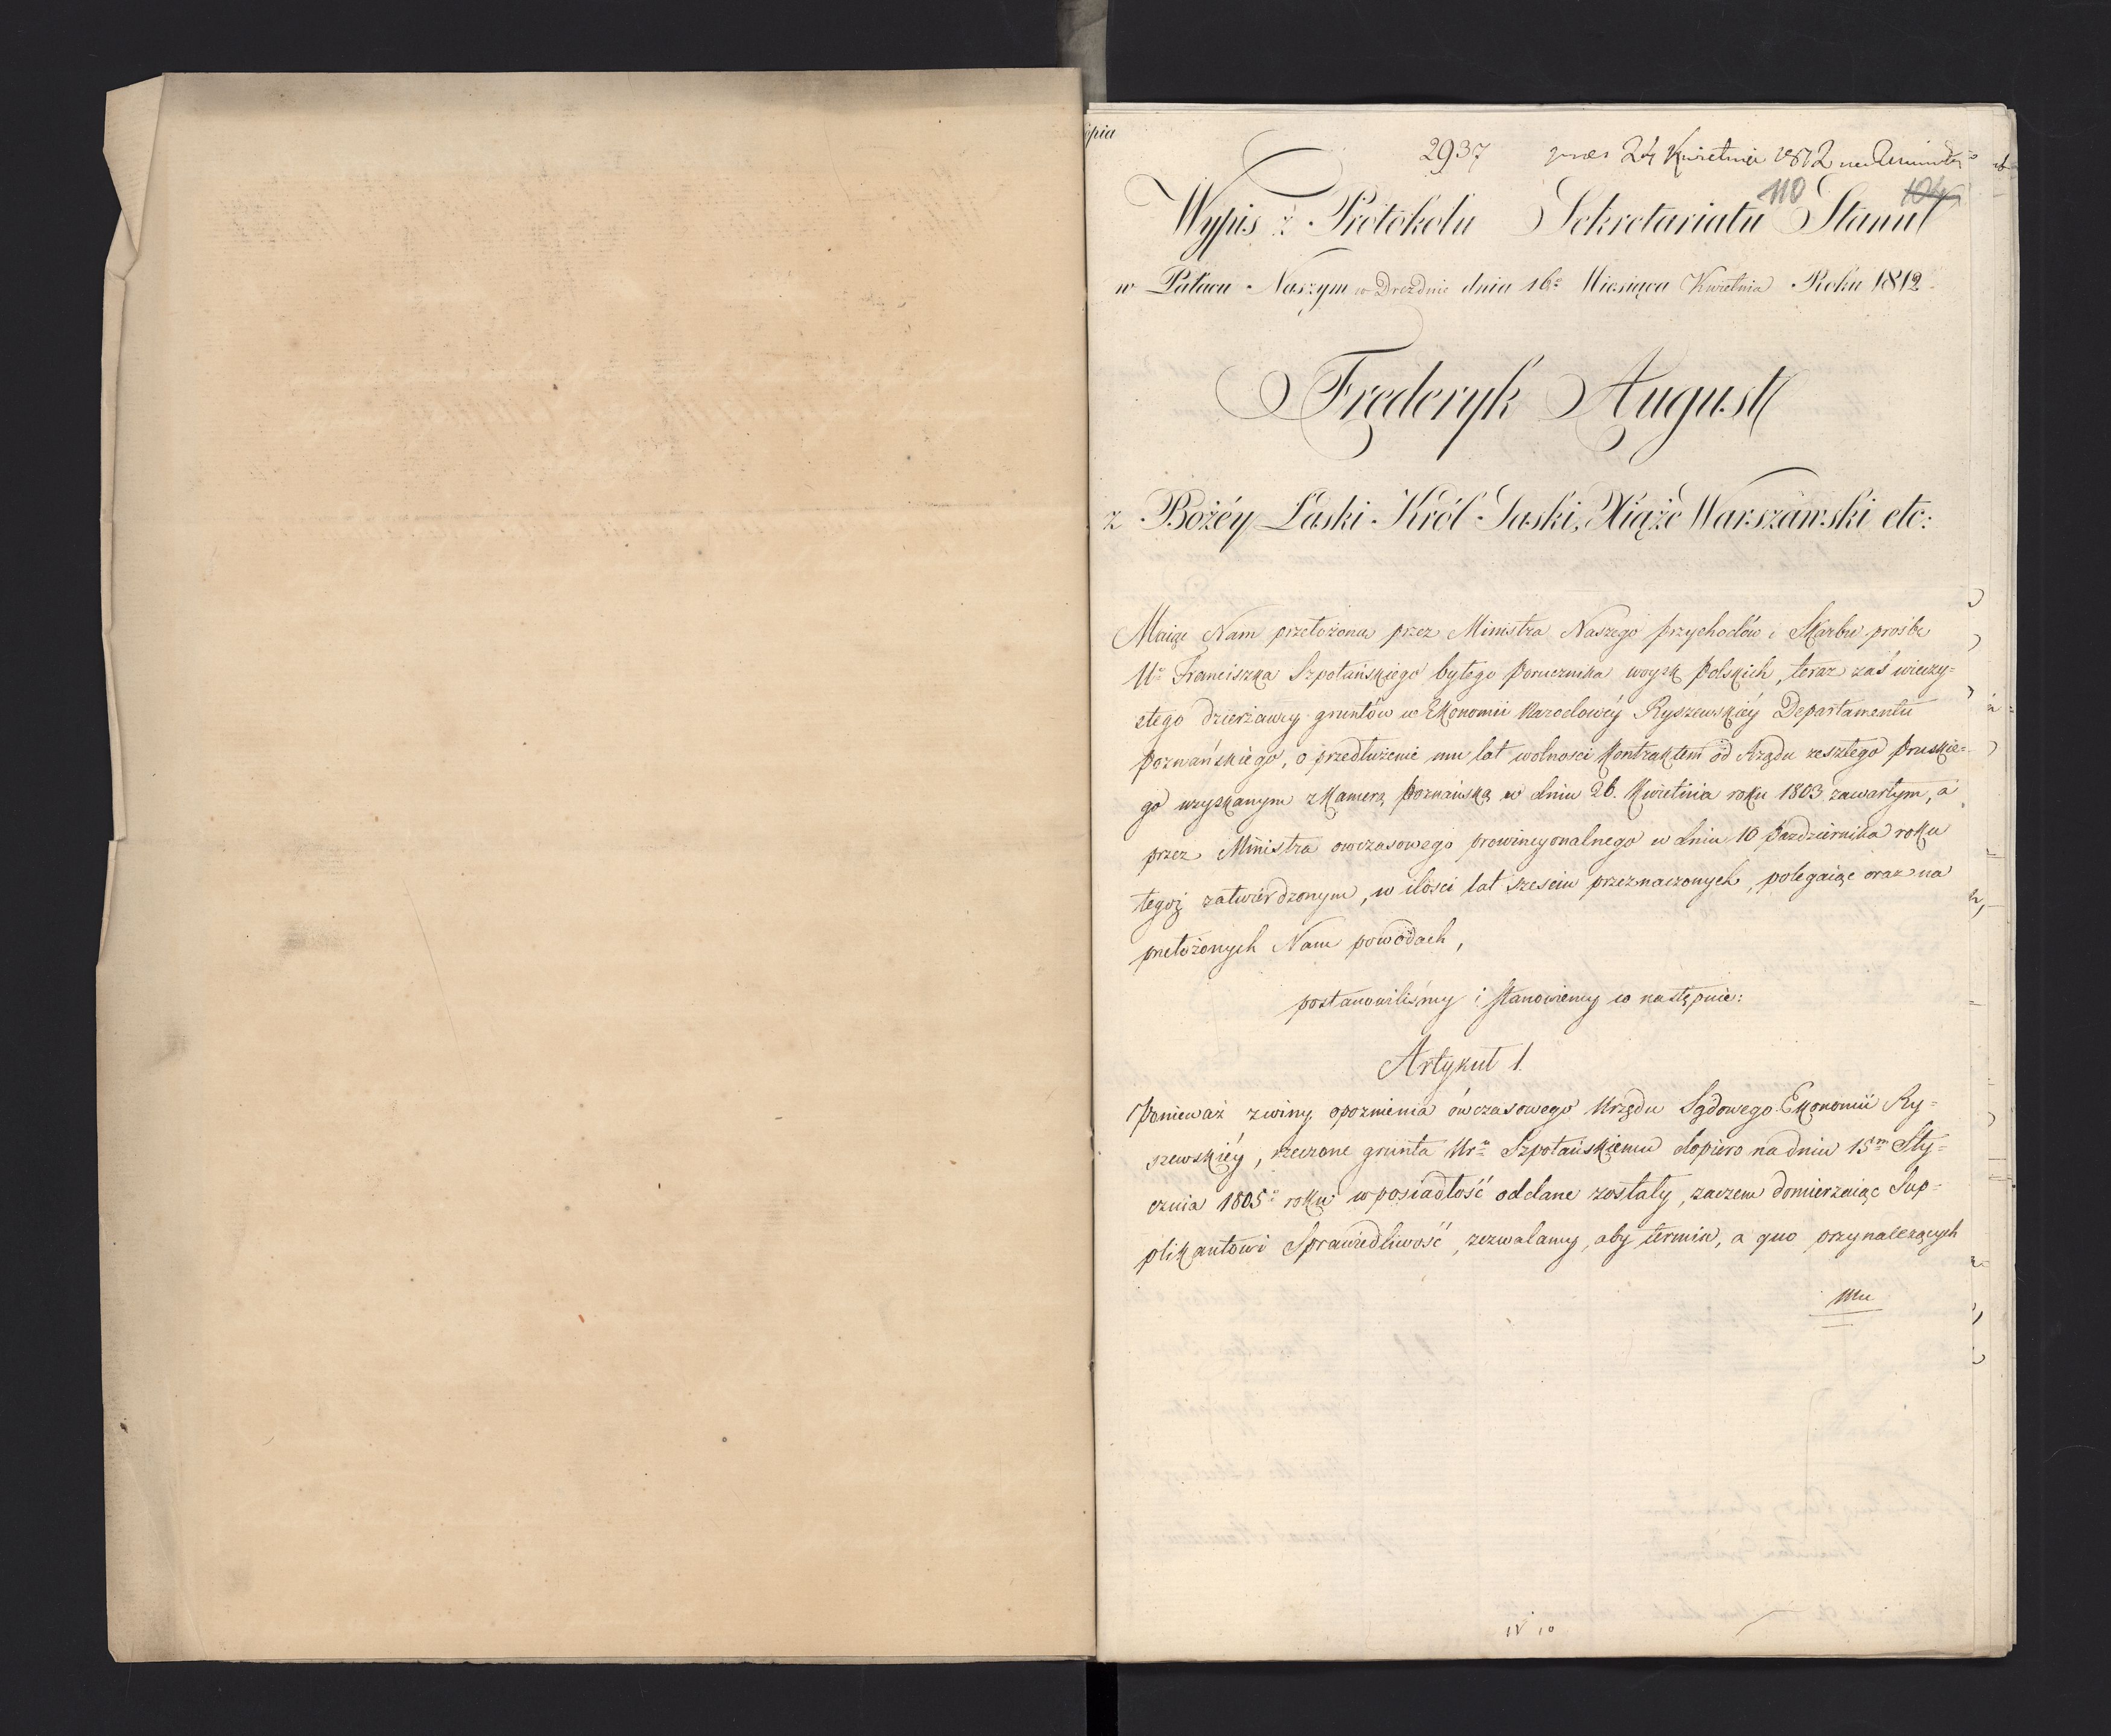 opia
2937 24 Kwietnia 1812
110 104
Wypis z Protokołu Sekretariatu Stanu
w Pałacu Naszym w Dreźnie dnia 16º Miesiąca Kwietnia Roku 1812
Fręderyk August
z Bożéy Łaski Król Saski, Xiążę Warszawski etc:
Maiąc Nam przełożoną przez Ministra Naszego przychodów i Skarbu prośbę
Uº Franciszka Szpotańskiego byłego Porucznika woysk Polskich, teraz zaś wieczy=
stego dzierżawcy gruntów w Ekonomii Narodowéy Ryszewskiéy Departamentu
Poznańskiego, o przedłużenie mu lat wolności Kontraktem od Rządu zeszłego Pruskie=
go uzyskanym z Kamerą Poznańską w dniu 26. Kwietnia roku 1803 zawartym, a
przez Ministra owczasowego prowincyonalnego w dniu 10 Pazdziernika roku
tegoż zatwierdzonym, w ilości lat sześciu przeznaczonych, polegaiąc oraz na
przełożonych Nam powodach,
postanowiliśmy i stanowiemy co następuie:
Artykuł 1.
Ponieważ z winy opoznienia ówczasowego Urzędu Sądowego Ekonomii Ry=
szewskiéy, rzeczone grunta Urº Szpotańskiemu dopiero na dniu 15m Sty=
cznia 1805º roku w posiadłość oddane zostały, zaczem domierzaiąc Sup=
plikantowi Sprawiedliwość, zezwalamy, aby termin, a quo przynalezących
mu
IV 10